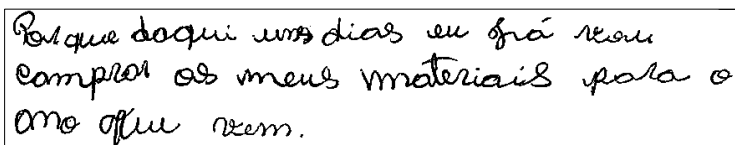 Porque daqui uns dias eu já vou
comprar os meus materiais para o
ano que vem.